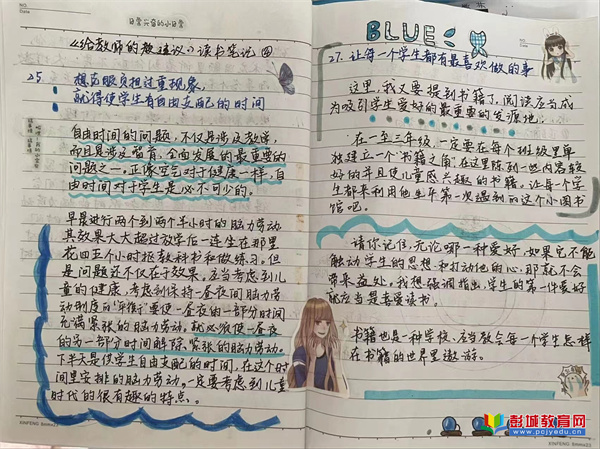 NO.
Date
日常元奋的小日常
《给教师的趣建议》读书笔记④
25.
想克服负担过重现象,
就得使学生有自由支配的时间
自由时间的问题,不仅是涉及教学,
而且是涉及智育、全面发展的最重要的
问题之一。正像空气对于健康一样,自
由时间对于学生是必不可少的。
早晨进行两个到两个半小时的脑力劳动
其效果大大超过放学后一连坐在那里
花四五个小时抠教科书和做练习。但
是问题还不仅在于效果。应当考虑到儿
童的健康,考虑到保持一昼夜间脑力劳
动制度的“平衡”:要使一昼夜的一部分时间
充满紧张的脑力劳动,就必须使一昼夜
的另一部分时间解除紧张的脑力劳动。
下半天是供学生自由支配的时间,在这个时
间里安排的脑力劳动,一定要考虑到儿童
时代的很有趣的特点。
XINFENG
BLUE
NO.
Date
27. 让每一个学生都有最喜欢做的事
这里,我又要提到书籍了,阅读应当成
为吸引学生爱好的最重要的发源地:
在一至三年级,一定要在每个班级里单
独建立一个“书籍之角”,在这里陈列一些内容较
好的并且使儿童感兴趣的书籍。让每个学
生都来利用他生平第一次遇到的这个小图书
馆吧。
请你记住,无论哪一种爱好,如果它不能
触动学生的思想和打动他的心,那就不会
带来益处。我想强调指出,学生的第一件爱好
就应当是喜爱读书。
书籍也是一种学校,应当教会每一个学生怎样
在书籍的世界里遨游。
XINFENG
彭城教育网
www.pcjyedu.cn